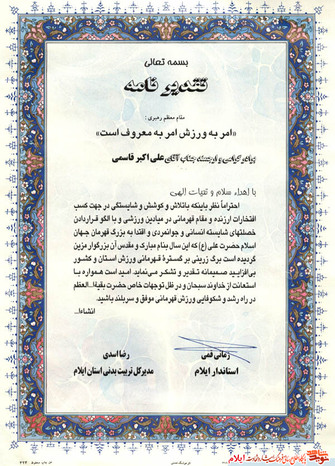 بسمه تعالی
تقدیر نامه
مقام معظم رهبری :
«امر به ورزش امر به معروف است»
برادر گرامی و ارجمند جناب آقای علی اکبر قاسمی
با اهداء سلام و تحیات الهی
احتراماً نظر باینکه باتلاش و کوشش و شایستگی در جهت کسب
افتخارات ارزنده و مقام قهرمانی در میادین ورزشی و با الگو قراردادن
خصلتهای شایسته انسانی و جوانمردی و اقتدا به بزرگ قهرمان جهان
اسلام حضرت علی (ع) که این سال بنام مبارک و مقدس آن بزرگوار مزین
گردیده است برگ زرینی بر گستره قهرمانی ورزش استان و کشور
بی‌افزایید صمیمانه تقدیر و تشکر می‌نماید. امید است همواره با
استعانت از خداوند سبحان و در ظل توجهات خاص حضرت بقیة‌ا...العظم
در راه رشد و شکوفایی ورزش قهرمانی موفق و سربلند باشید.
انشاءا...
رضا اسدی
مدیرکل تربیت بدنی استان ایلام
زمانی قمی
استاندار ایلام
ایلام